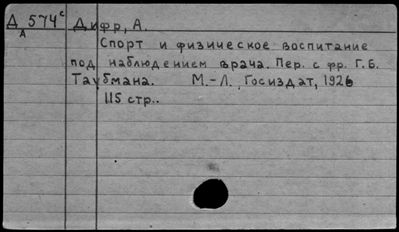 Д 574ᶜ Дифр, А.
А
Спорт и физическое воспитание
под наблюдением врача. Пер. с фр. Г.Б.
Таубмана. М.-Л., Госиздат, 1926
115 стр..